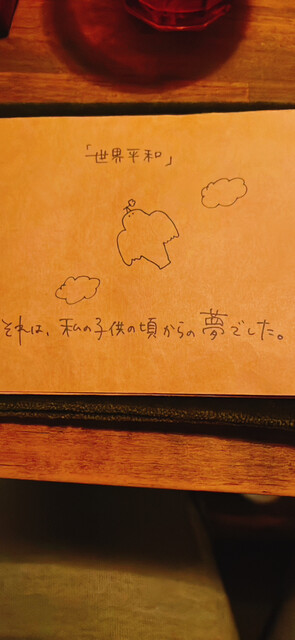 「世界平和」
それは、私の子供の頃からの夢でした。